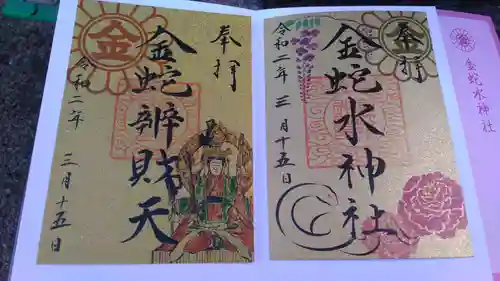 奉拝
金
金蛇辨財天
令和二年
三月十五日
金
奉拝
金蛇水神社
令和二年
三月十五日
金蛇水神社